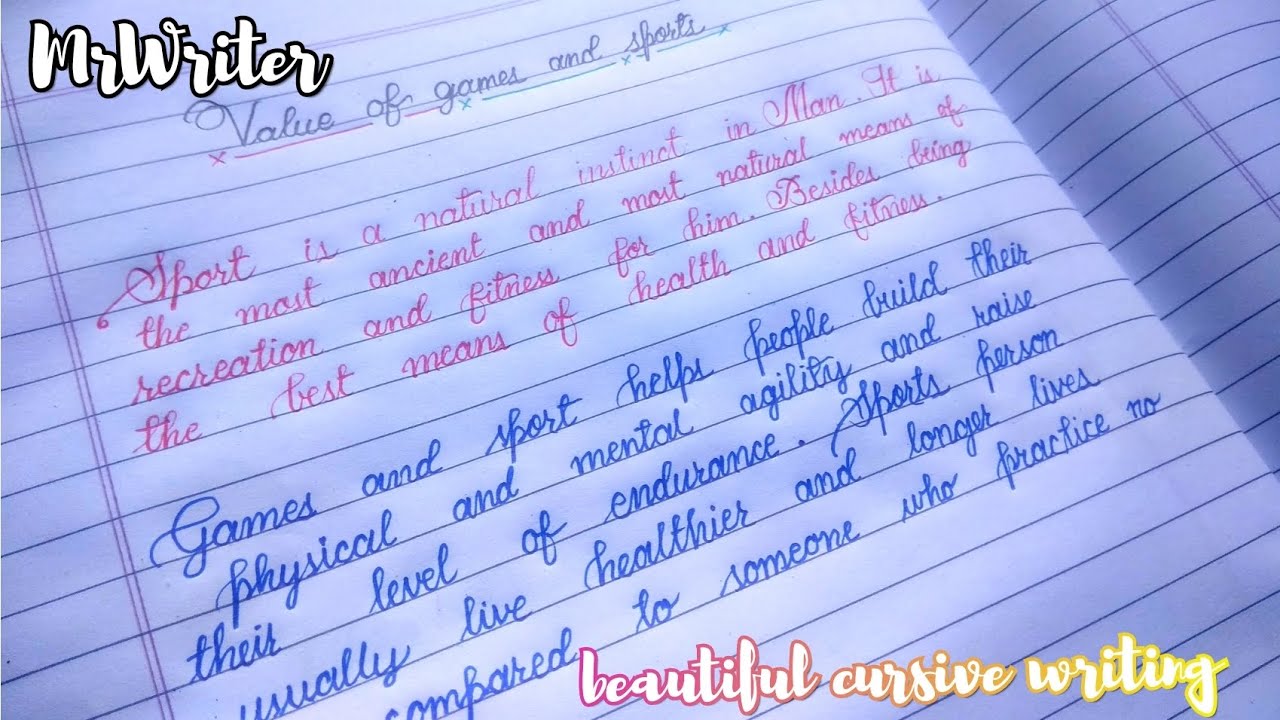 MrWriter
Value of games and sports
Sport is a natural instinct in Man. It is
the most ancient and most natural means of
recreation and fitness for him. Besides being
the best means of health and fitness.
Games and sport helps people build their
physical and mental agility and raise
their level of endurance. Sports person
usually live healthier and longer lives
compared to someone who practice no
beautiful cursive writing